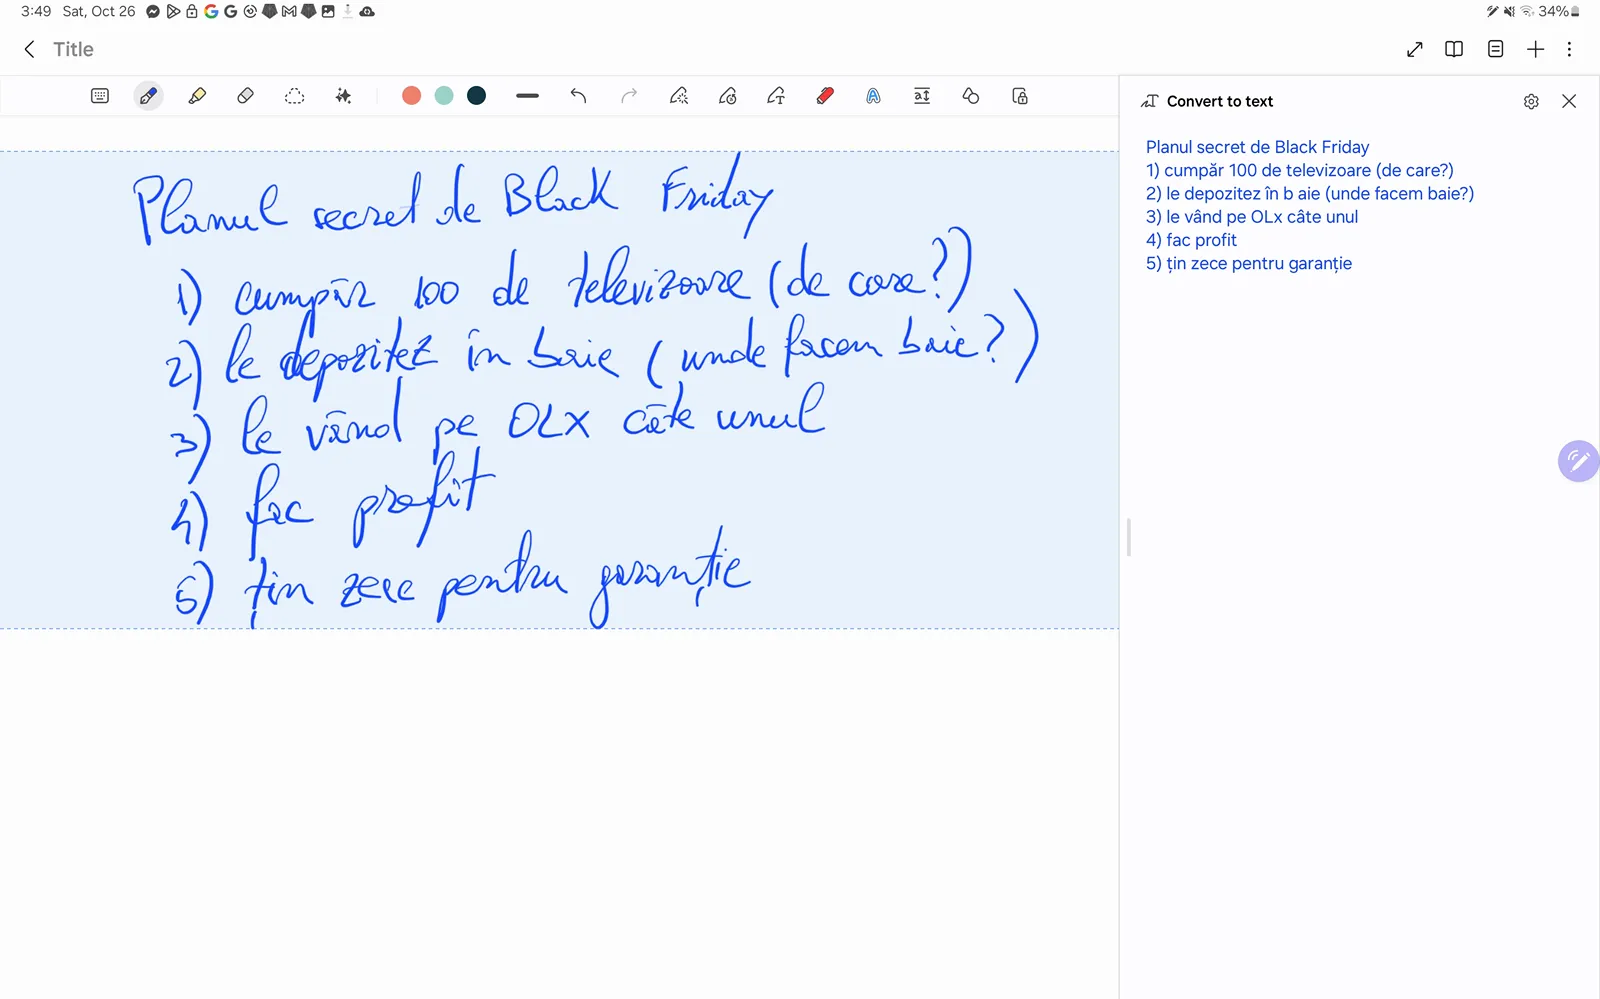 3:49 Sat, Oct 26
34%
Title
Convert to text
Planul secret de Black Friday
1) cumpăr 100 de televizoare (de care?)
2) le depozitez în baie (unde facem baie?)
3) le vând pe OLX câte unul
4) fac profit
5) țin zece pentru garanție
Planul secret de Black Friday
1) cumpăr 100 de televizoare (de care?)
2) le depozitez în b aie (unde facem baie?)
3) le vând pe OLx câte unul
4) fac profit
5) țin zece pentru garanție